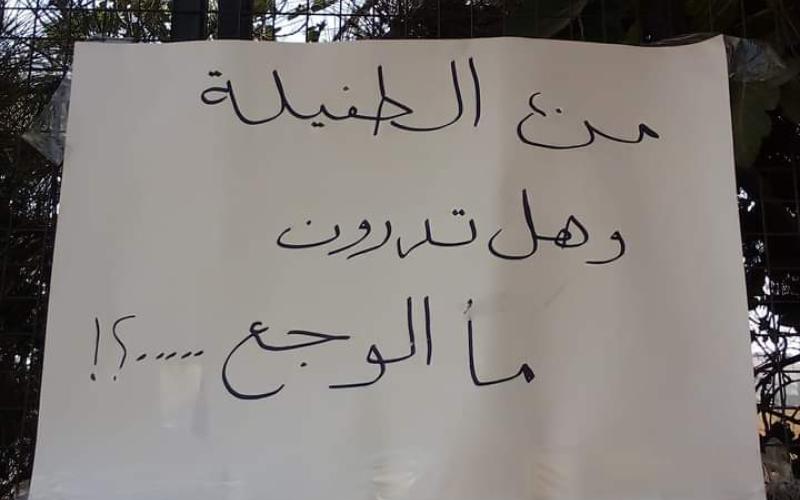 من الطفيلة
وهل تدرون
ما الوجع .....؟!